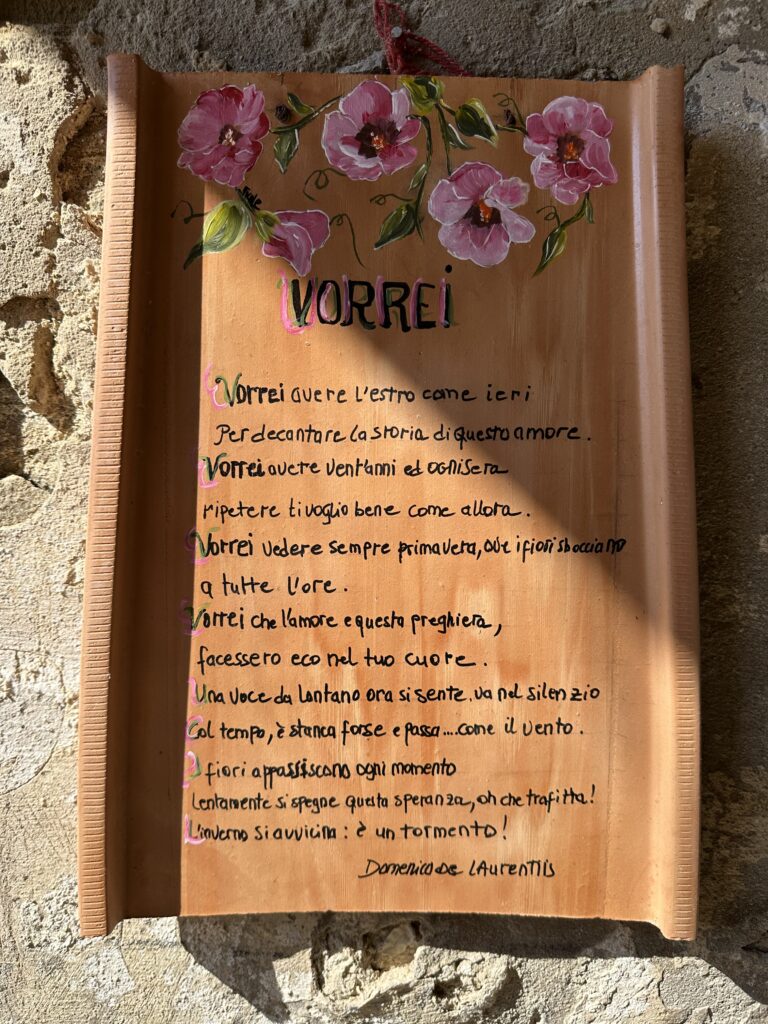 VORREI
Vorrei avere l'estro come ieri
Per decantare la storia di questo amore.
Vorrei avere vent'anni ed ogni sera
ripetere ti voglio bene come allora.
Vorrei vedere sempre primavera, ove i fiori sbocciano
a tutte l'ore.
Vorrei che l'amore e questa preghiera,
facessero eco nel tuo cuore.
Una voce da lontano ora si sente. va nel silenzio
Col tempo, è stanca forse e passa....come il vento.
I fiori appassiscono ogni momento
Lentamente si spegne questa speranza, oh che trafitta!
L'inverno si avvicina: è un tormento!
Domenico De Laurentiis